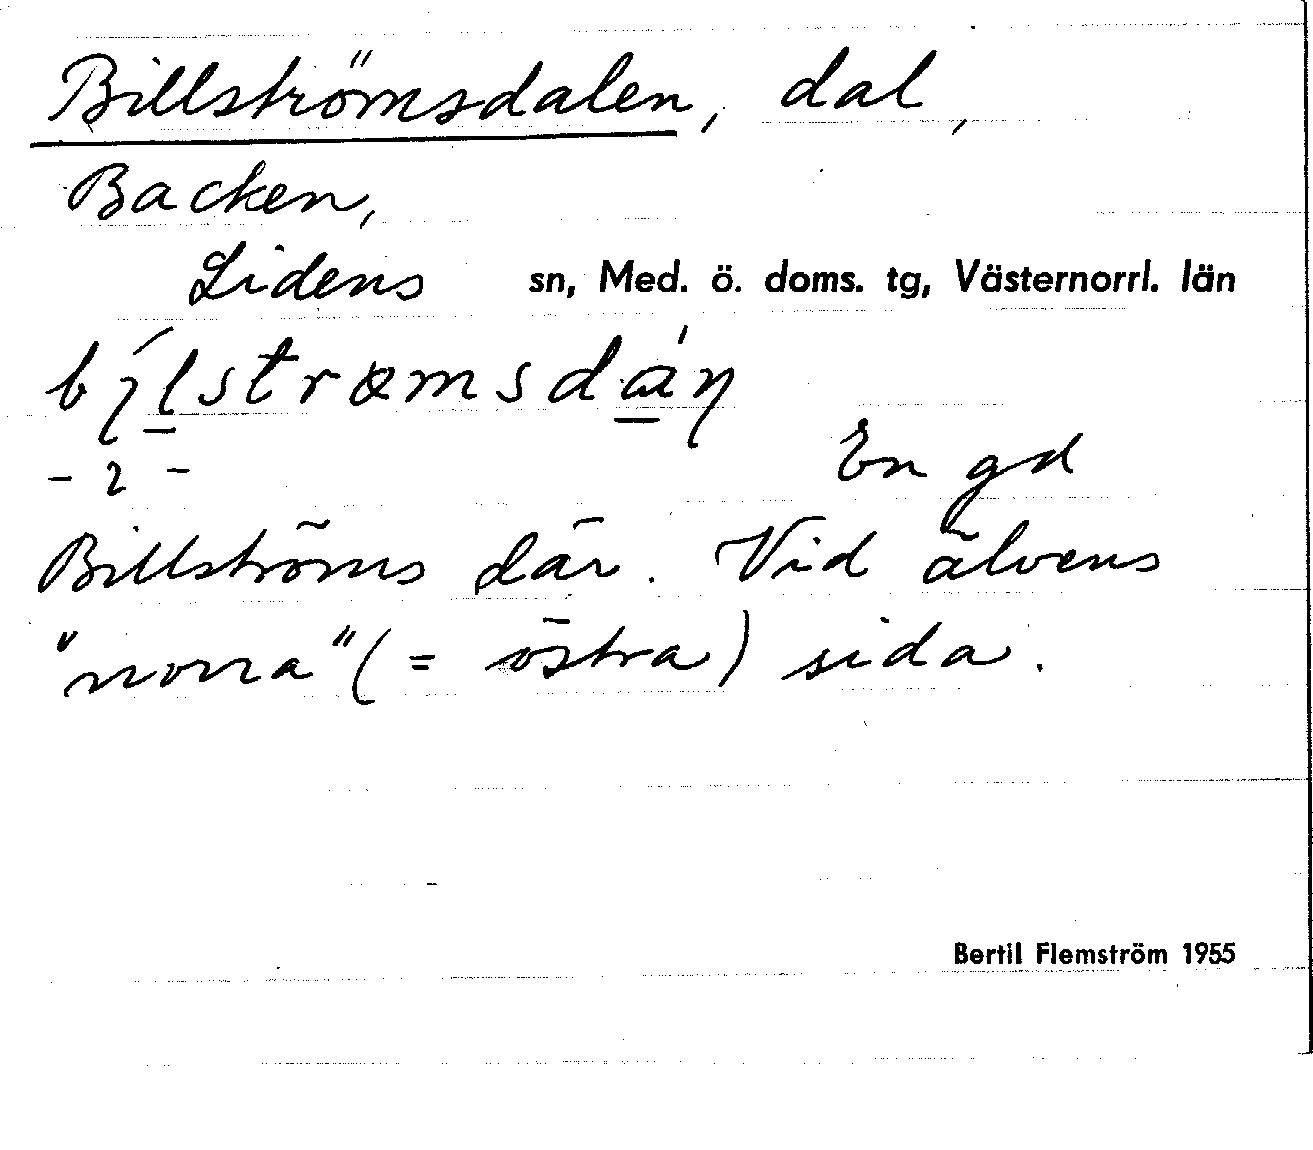 Billströmsdalen, dal,
Backen,
Lidens sn, Med. ö. doms. tg, Västernorrl. län
bı́l̲strømsdá̲ŋ
- 2 -
En gd
Billströms där. Vid älvens
"norra" (= östra) sida.
Bertil Flemström 1955